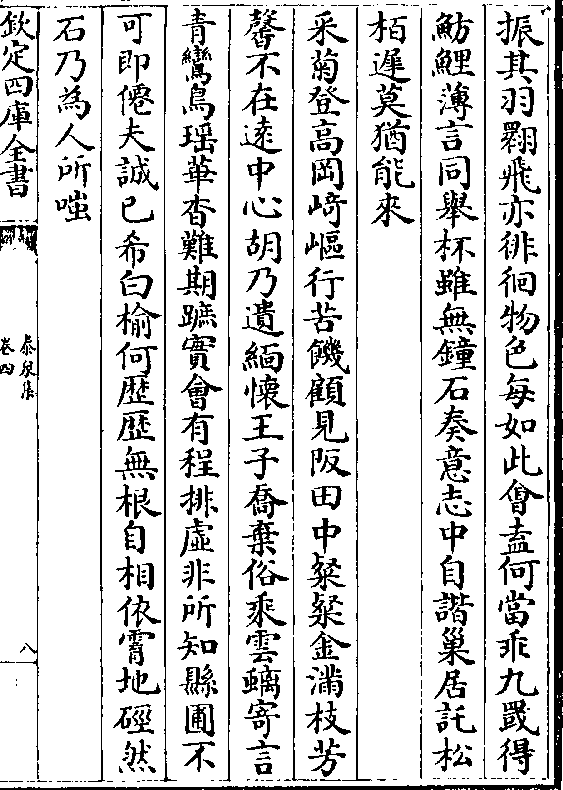 振其羽翮飛亦徘徊物色每如此會盍何當乖九罭得
魴鯉薄言同舉杯雖無鐘石奏意志中自諧巢居託松
栢遲莫猶能來
采菊登高岡﨑嶇行苦饑顧見阪田中粲粲金滿枝芳
馨不在逺中心胡乃遺緬懷王子喬棄俗乘雲螭寄言
青鸞鳥瑶華杳難期蹠實會有程排虛非所知縣圃不
可即僊夫誠已希白榆何歴歴無根自相依霣地硜然
石乃為人所嗤
欽定四庫全書
泰泉集
卷四
八